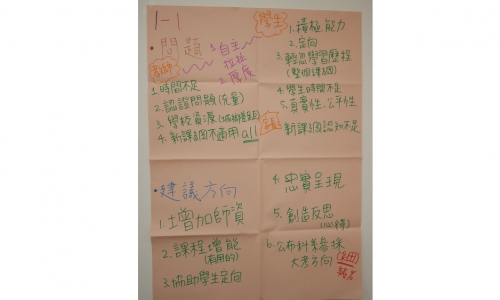 1-1
•問題
教師
1.時間不足
2.認證問題(兒童)
3.學校資源
4.新課綱不適用all
3.自主
厚度
學生
1.積極能力
2.定向
3.輕忽學習歷程
(整個課綱)
4.學生時間不足
5.真實性.公平性
新課綱認知不足
•建議方向
1.增加師資
2.課程增能
(有用的)
3.協助學生定向
4.忠實呈現
5.創造反思
6.公布科系參採
大考方向